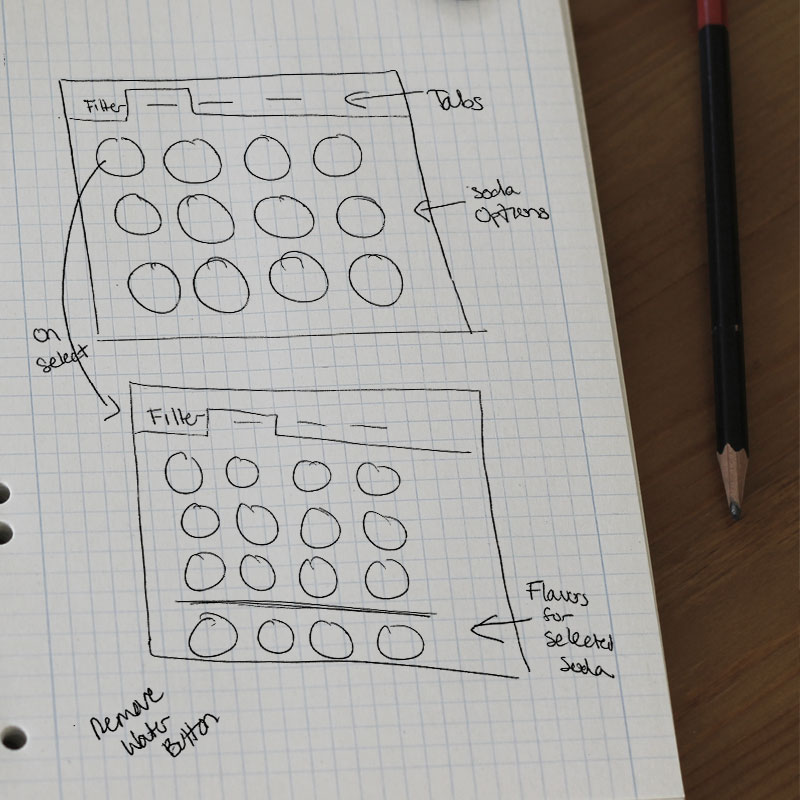 Filter
Tabs
Soda
Options
on
select
Filter
Flavors
for
selected
Soda
Remove
Water
Button